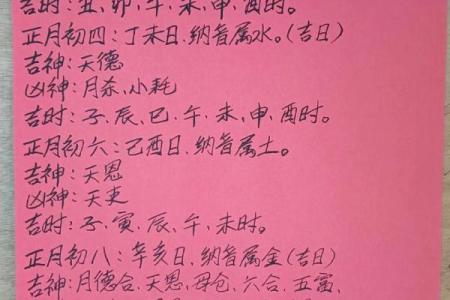 吉时:丑、卯、午、未、申、酉时。
正月初四:丁未日、纳音属水。(吉日)
吉神:天德
凶神:月杀、小耗
吉时:子、辰、巳、午、未、申、酉时。
正月初六:己酉日、纳音属土。
吉神:天恩
凶神:天吏
吉时:子、寅、辰、午、未时。
正月初八:辛亥日、纳音属金(吉日)
吉神:月德合、天恩、母仓、六合、五富、